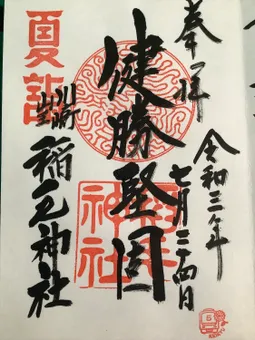 奉拝
令和三年
七月二十四日
健勝堅固
夏詣
川崎
稲毛神社
稲毛神社